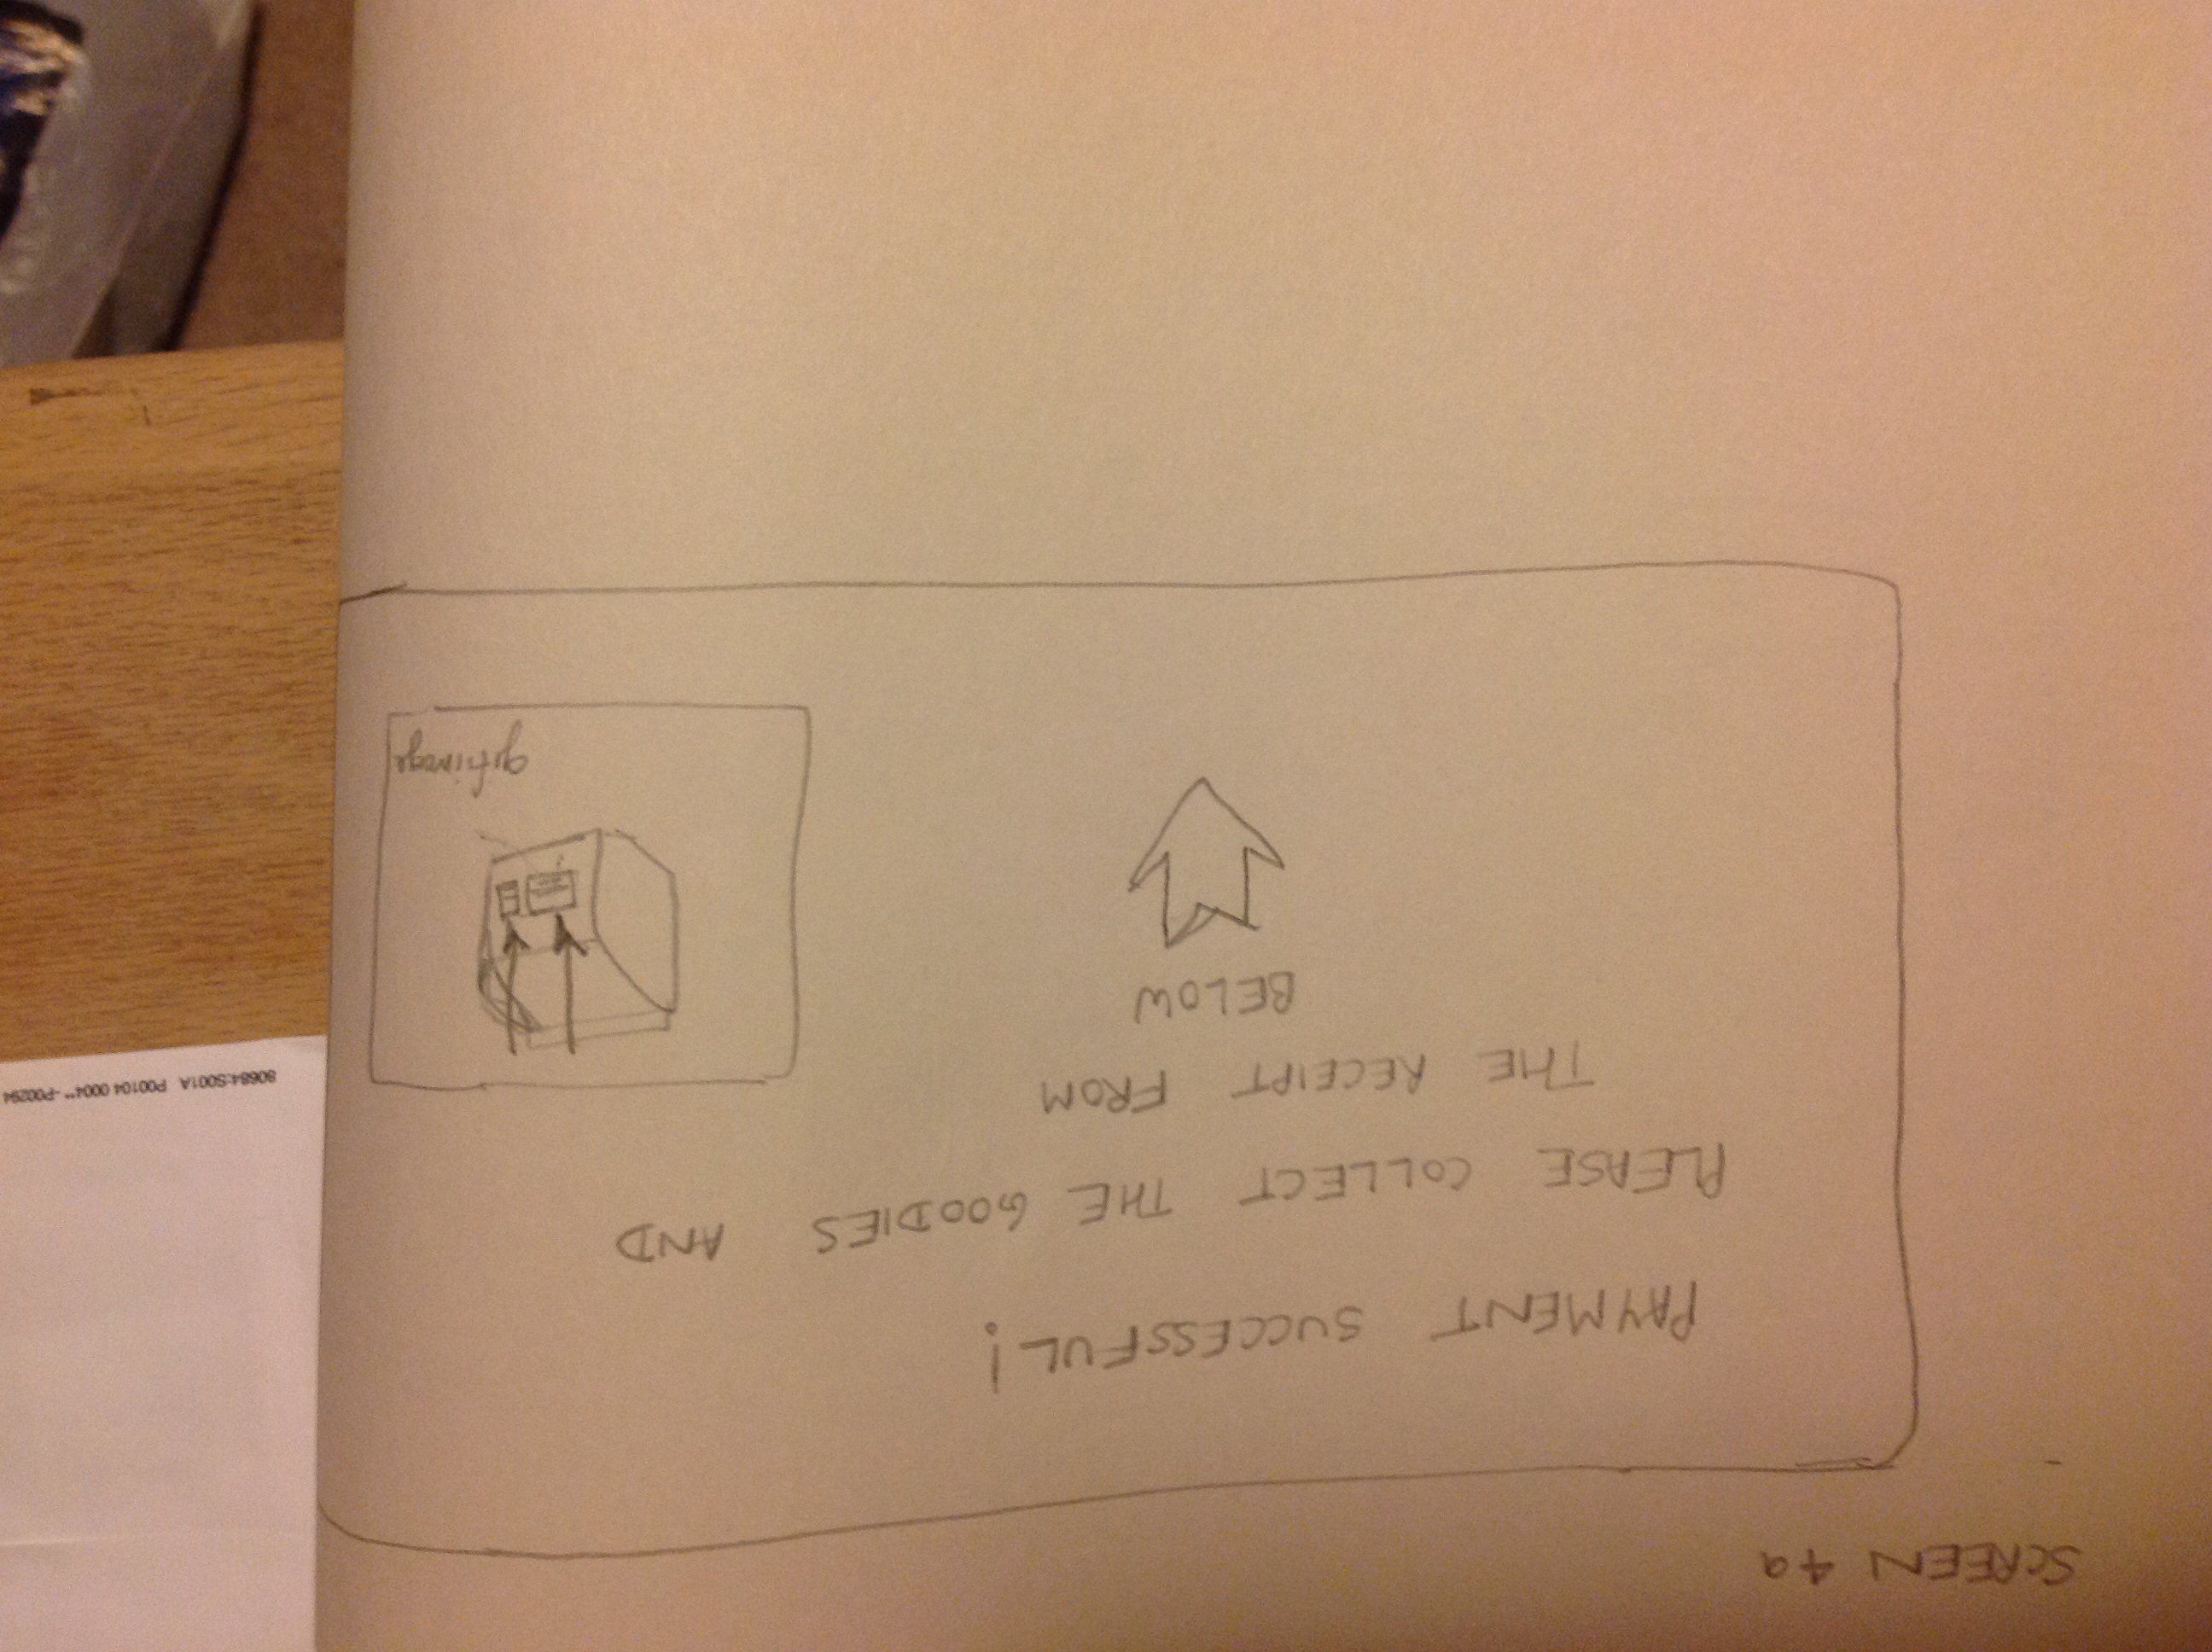 SCREEN 4a
PAYMENT SUCCESSFUL!
PLEASE COLLECT THE GOODIES AND
THE RECEIPT FROM
BELOW
80684:S001A P00104 0004** -P00294